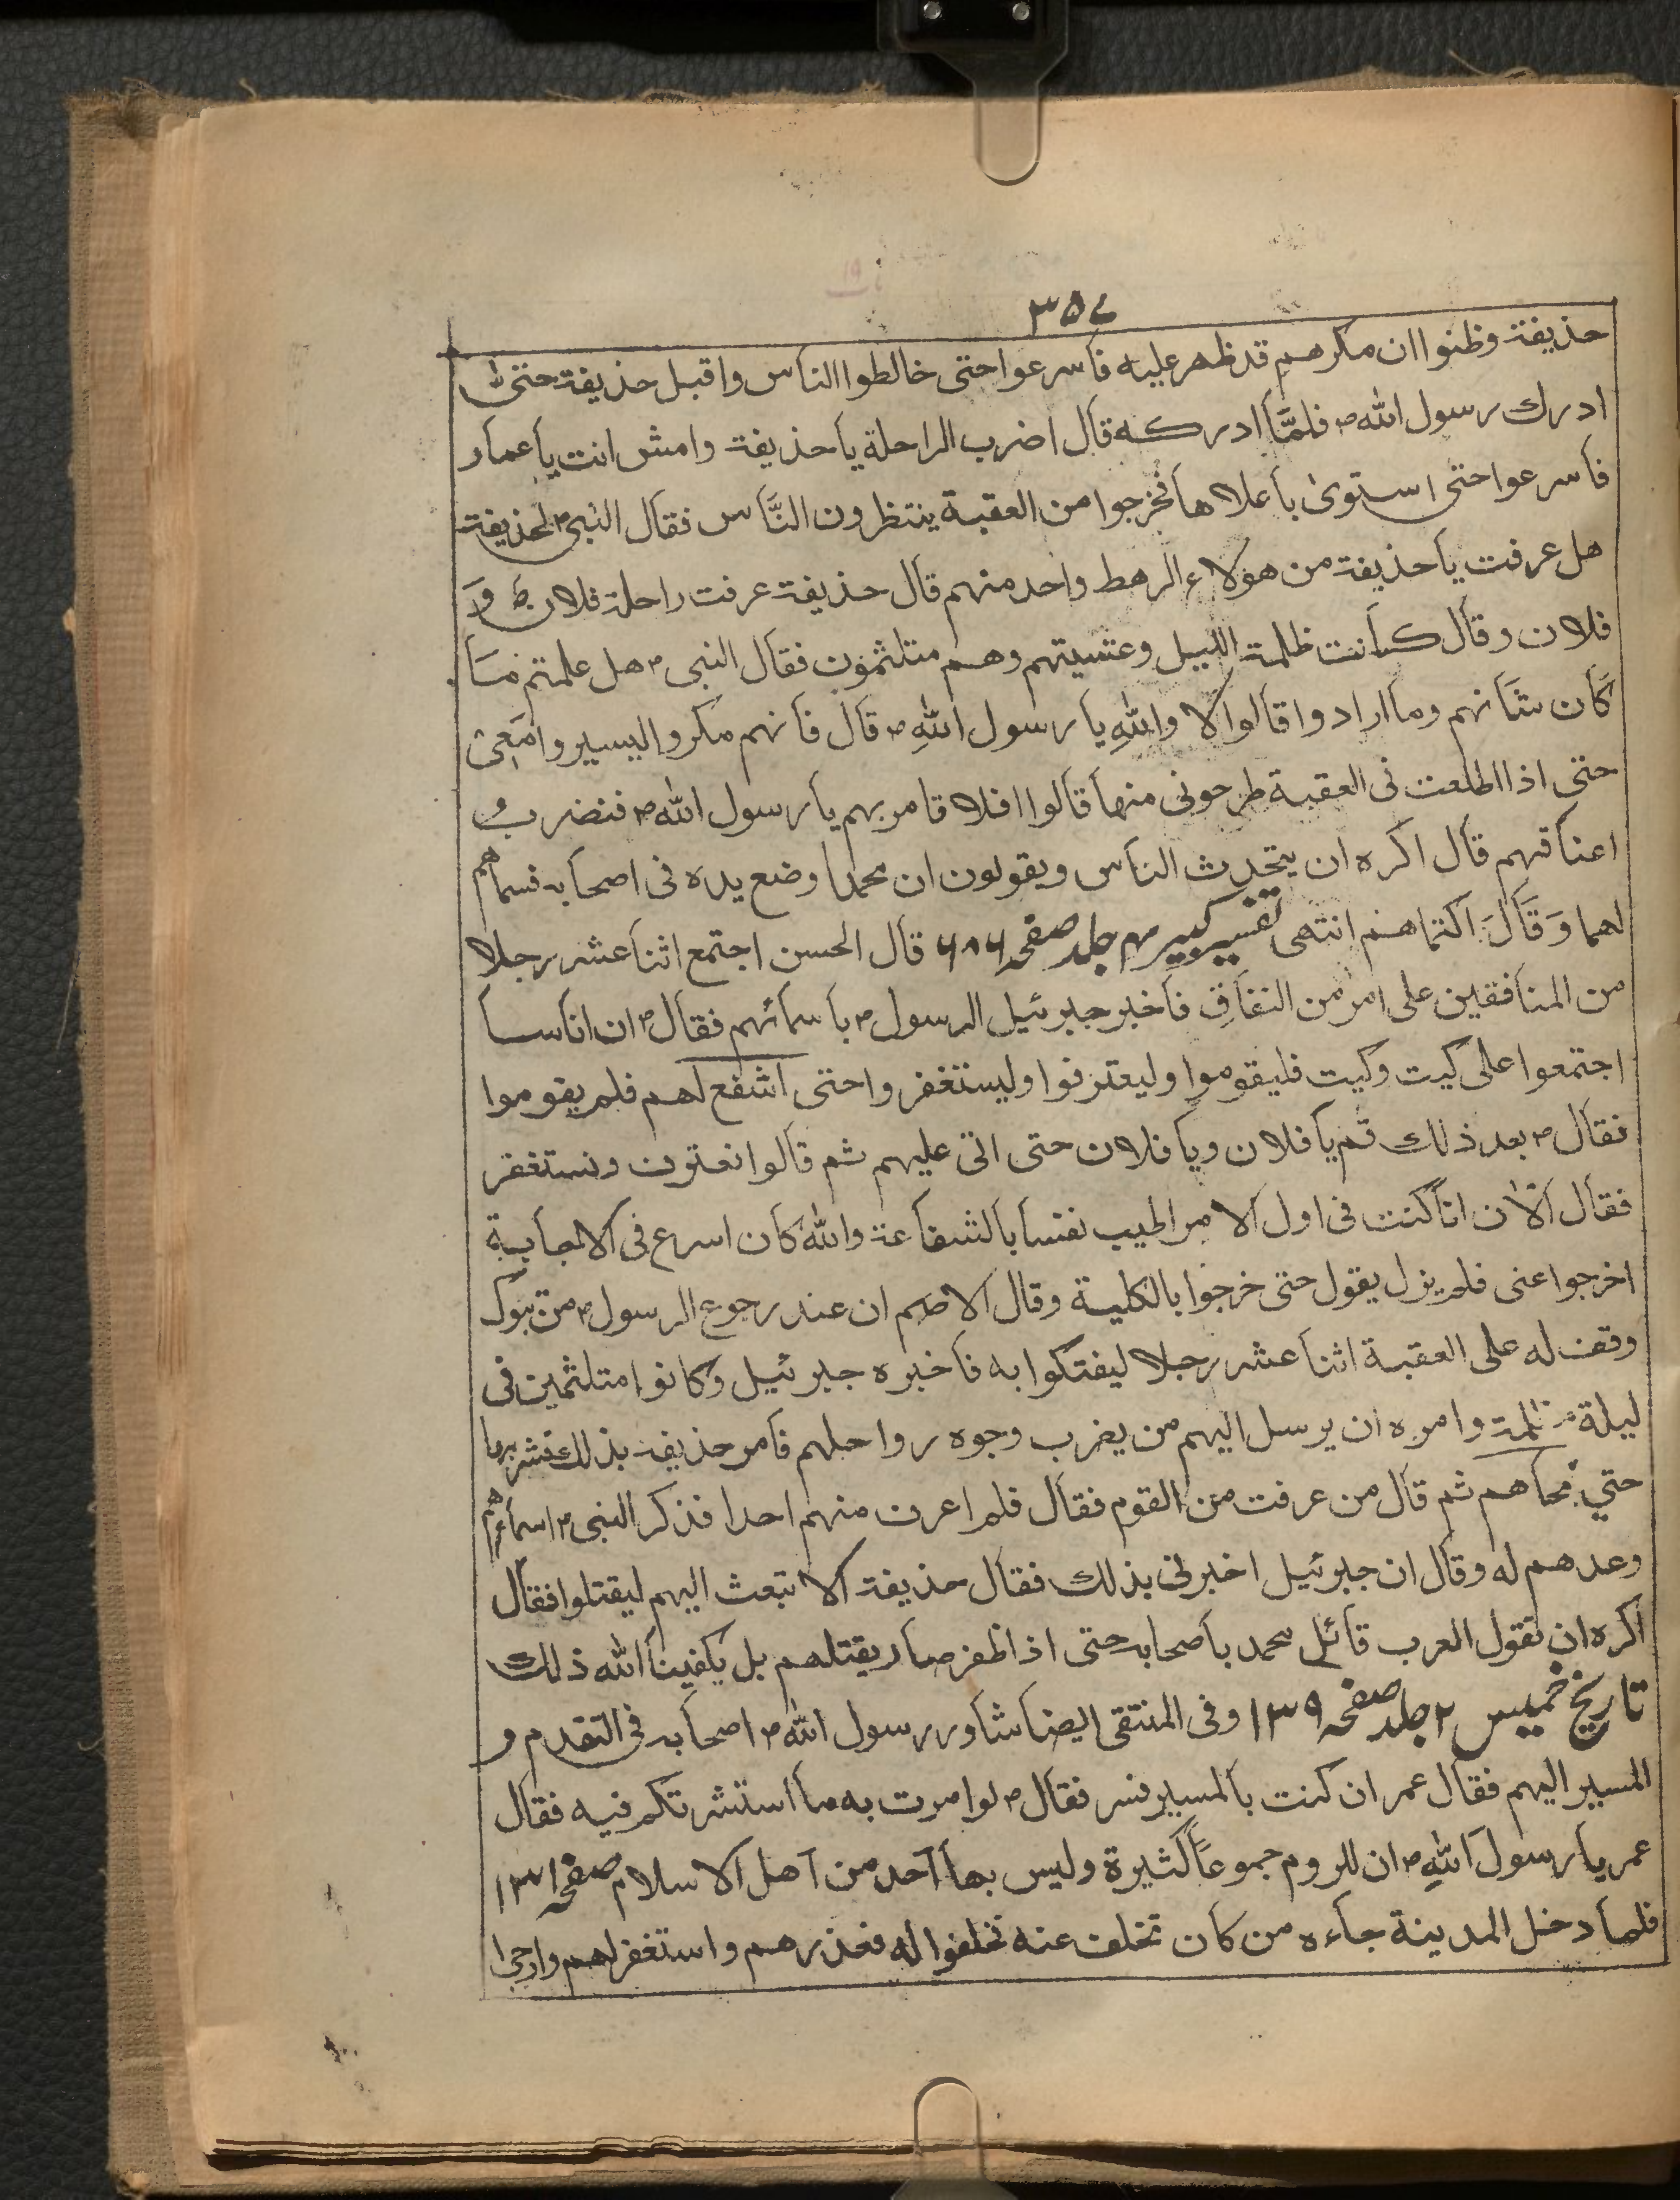 ۳۵۷
حذیفة وظنوا ان مکرهم قد ظهر علیه فأسرعوا حتی خالطوا الناس واقبل حذیفة حتی
ادرك رسول الله ص فلمَّا ادرکه قال اضرب الراحلة یا حذیفة وامش انت یا عمار
فأسرعوا حتی استوی بأعلاها فخرجوا من العقبة ینتظرون النَّاس فقال النبی ص لحذیفة
هل عرفت یا حذیفة من هؤلاء الرهط واحد منهم قال حذیفة عرفت راحلة فلان وَ
فلان وقال کانت ظلمة اللیل وعشیتهم وهم متلثمون فقال النبی ص هل علمتم مَا
کَان شَانهم وما ارادوا قالوا لا واللهِ یا رسول اللهِ ص قال فانهم مکروا لیسیروا مَعِیْ
حتی اذا اطلعت فی العقبة طرحونی منها قالوا افلا تامر بهم یا رسول الله ص فنضرب
اعناقهم قال اکره ان یتحدث الناس ویقولون ان محمدا وضع یده فی اصحابه فسماهم
لهما وَقَالَ اکتماهم انتهی تفسیر کبیر ۴ جلد صفحه ۶۸۶ قال الحسن اجتمع اثنا عشر رجلا
من المنافقین علی امر من النفاقِ فأخبر جبرئیل الرسول ص بأسمائهم فقال ص ان اناسا
اجتمعوا علی کیت وکیت فلیقوموا ولیعترفوا ولیستغفروا حتی اشفع لهم فلم یقوموا
فقال ص بعد ذلك قم یا فلان ویا فلان حتی اتی علیهم ثم قالوا نعترف ونستغفر
فقال الآن انا کنت فی اول الامر اطیب نفسا بالشفاعة والله کان اسرع فی الاجابة
اخرجوا عنی فلم یزل یقول حتی خرجوا بالکلیة وقال الاصم ان عند رجوع الرسول ص من تبوک
وقف له علی العقبة اثنا عشر رجلا لیفتکوا به فأخبره جبرئیل وکانوا متلثمین فی
لیلة مظلمة وامره ان یرسل الیهم من یضرب وجوه رواحلهم فأمر حذیفة بذلك فضربها
حتی نحاهم ثم قال من عرفت من القوم فقال فلم اعرف منهم احدا فذکر النبی ص اسماءهم
وعدهم له وقال ان جبرئیل اخبرنی بذلك فقال حذیفة الا تبعث الیهم لیقتلوا فقال
اکره ان تقول العرب قاتل محمد بأصحابه حتی اذا ظفر صار یقتلهم بل یکفینا الله ذلك
تاریخ خمیس ۲ جلد صفحه ۱۳۹ وفی المنتقی ایضا شاور رسول الله ص اصحابه فی التقدم و
المسیر الیهم فقال عمر ان کنت بالمسیر فسر فقال ص لو امرت به ما استشرتکم فیه فقال
عمر یا رسول اللهِ ص ان للروم جموعًا کثیرة ولیس بها احد من اهل الاسلام صفحه ۱۳۱
فلما دخل المدینة جاءه من کان تخلف عنه فحلفوا له فعذرهم واستغفر لهم وارجی